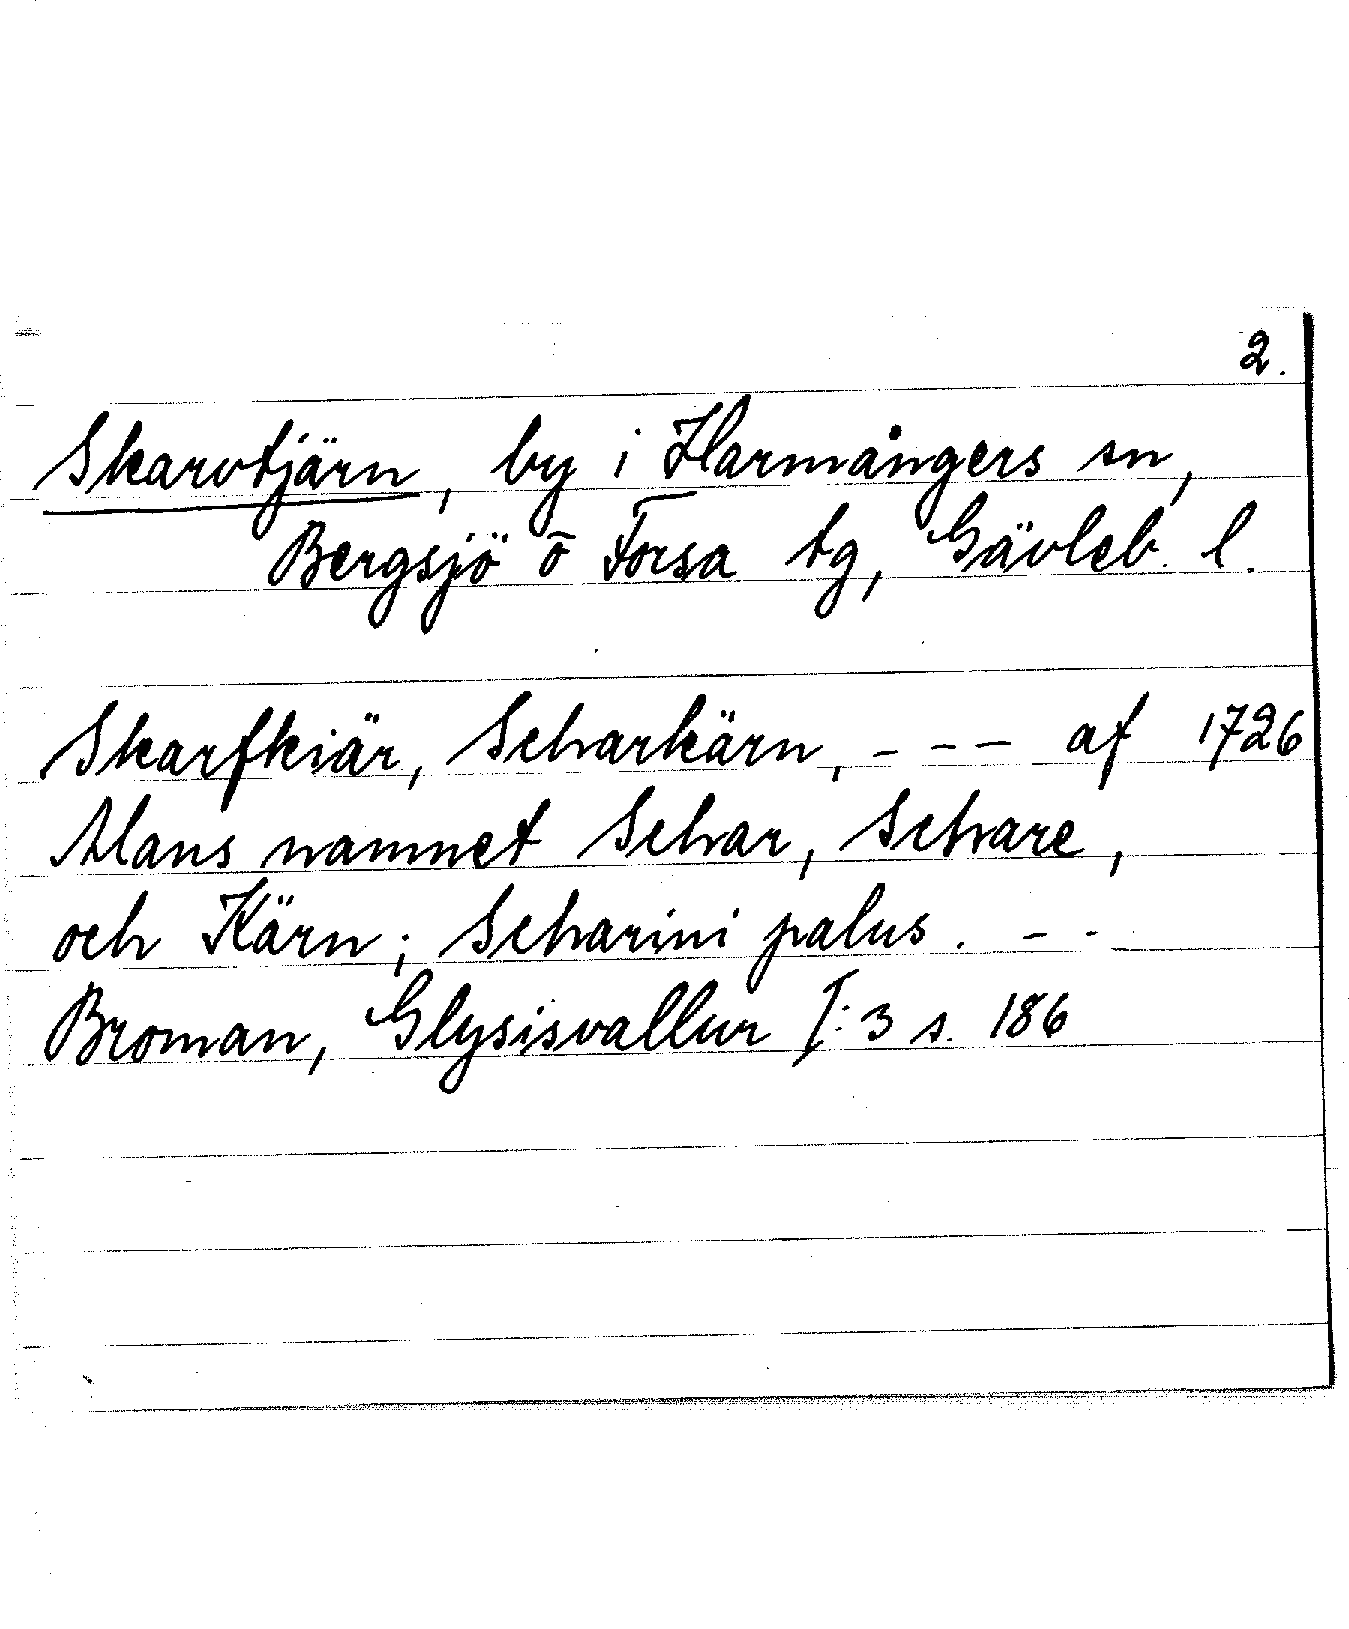 2.
Skarvtjärn, by i Harmångers sn,
Bergsjö o Forsa tg, Gävleb. l.
Skarfkiär, Scharkärn, - - - af 1726
Mans namnet Schar, Schare,
och Kärn; Scharini palus. - -
Broman, Glysisvallur I:3 s. 186